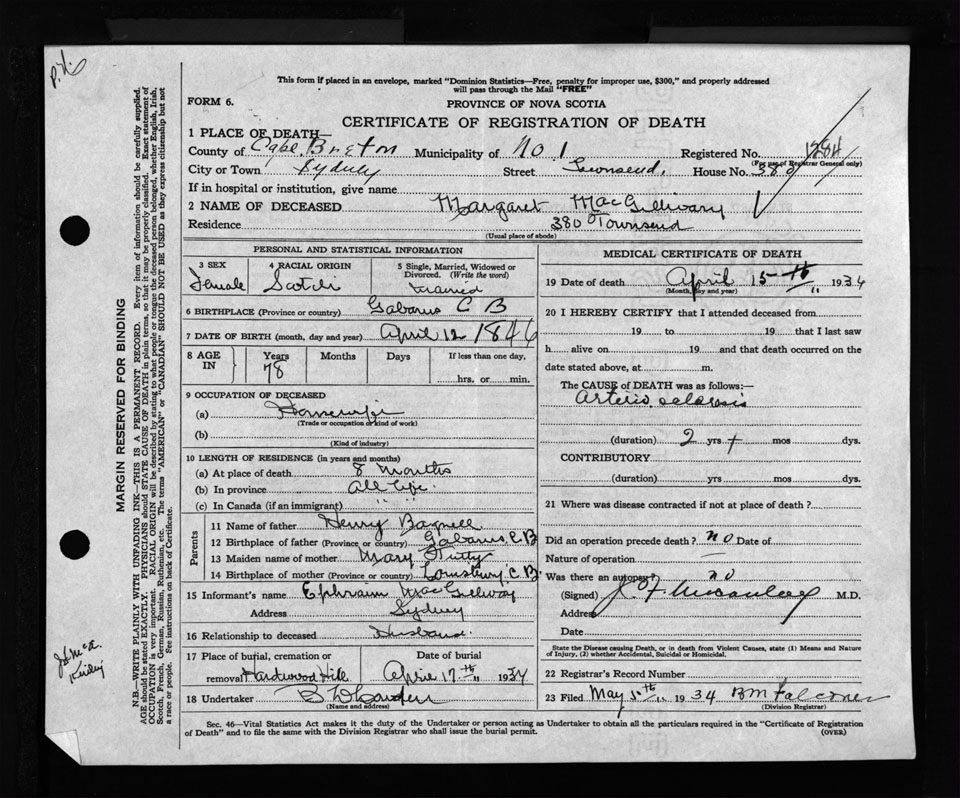 P.X.
This form if placed in an envelope, marked "Dominion Statistics—Free, penalty for improper use, $300," and properly addressed
will pass through the Mail "FREE"
FORM 6.
PROVINCE OF NOVA SCOTIA
CERTIFICATE OF REGISTRATION OF DEATH
1 PLACE OF DEATH—
County of Cape Breton Municipality of No. 1 Registered No. 1284
(For use of Registrar General only)
City or Town Sydney Street Townsend, House No. 380
If in hospital or institution, give name
2 NAME OF DECEASED Margaret MacGillivary
Residence 380 Townsend
(Usual place of abode)
PERSONAL AND STATISTICAL INFORMATION
3 SEX Female
4 RACIAL ORIGIN Scotch
5 Single, Married, Widowed or Divorced. (Write the word) married
6 BIRTHPLACE (Province or country) Gabarus C B
7 DATE OF BIRTH (month, day and year) April 12 1846
8 AGE IN Years 78 Months Days If less than one day, hrs. or min.
9 OCCUPATION OF DECEASED
(a) Housewife
(Trade or occupation or kind of work)
(b)
(Kind of industry)
10 LENGTH OF RESIDENCE (in years and months)
(a) At place of death 8 months
(b) In province all life.
(c) In Canada (if an immigrant) " "
Parents
11 Name of father Henry Bagnell
12 Birthplace of father (Province or country) Gabarus C.B
13 Maiden name of mother Mary Tutty
14 Birthplace of mother (Province or country) Louisburg C.B.
15 Informant's name Ephraim MacGillivary
Address Sydney
16 Relationship to deceased Husband.
17 Place of burial, cremation or removal Hardwood Hill Date of burial April 17th " 1934
18 Undertaker
(Name and address)
MEDICAL CERTIFICATE OF DEATH
19 Date of death April 15th " 1934
(Month, day and year)
20 I HEREBY CERTIFY that I attended deceased from
19 to 19 that I last saw
h alive on 19 and that death occurred on the
date stated above, at m.
The CAUSE of DEATH was as follows:—
Arterio sclerosis
(duration) 2 yrs + mos dys.
CONTRIBUTORY
(duration) yrs. mos. dys.
21 Where was disease contracted if not at place of death?
Did an operation precede death? no Date of
Nature of operation
Was there an autopsy? no
(Signed) M.D.
Address
Date
State the Disease causing Death, or in death from Violent Causes, state (1) Means and Nature of Injury, (2) whether Accidental, Suicidal or Homicidal.
22 Registrar's Record Number
23 Filed May 1934 B M Falconer
(Division Registrar)
Sec. 46—Vital Statistics Act makes it the duty of the Undertaker or person acting as Undertaker to obtain all the particulars required in the "Certificate of Registration
of Death" and to file the same with the Division Registrar who shall issue the burial permit.
(OVER)
MARGIN RESERVED FOR BINDING
N.B.—WRITE PLAINLY WITH UNFADING INK—THIS IS A PERMANENT RECORD. Every item of information should be carefully supplied.
AGE should be stated EXACTLY. PHYSICIANS should STATE CAUSE OF DEATH in plain terms, so that it may be properly classified. Exact statement of
OCCUPATION is very important. RACIAL ORIGIN will be described by stating to what people or tongue the deceased person belonged, whether English, Irish,
Scotch, French, German, Russian, Ruthenian, etc. The terms "AMERICAN" or "CANADIAN" SHOULD NOT BE USED as they express citizenship but not
a race or people. See instructions on back of Certificate.